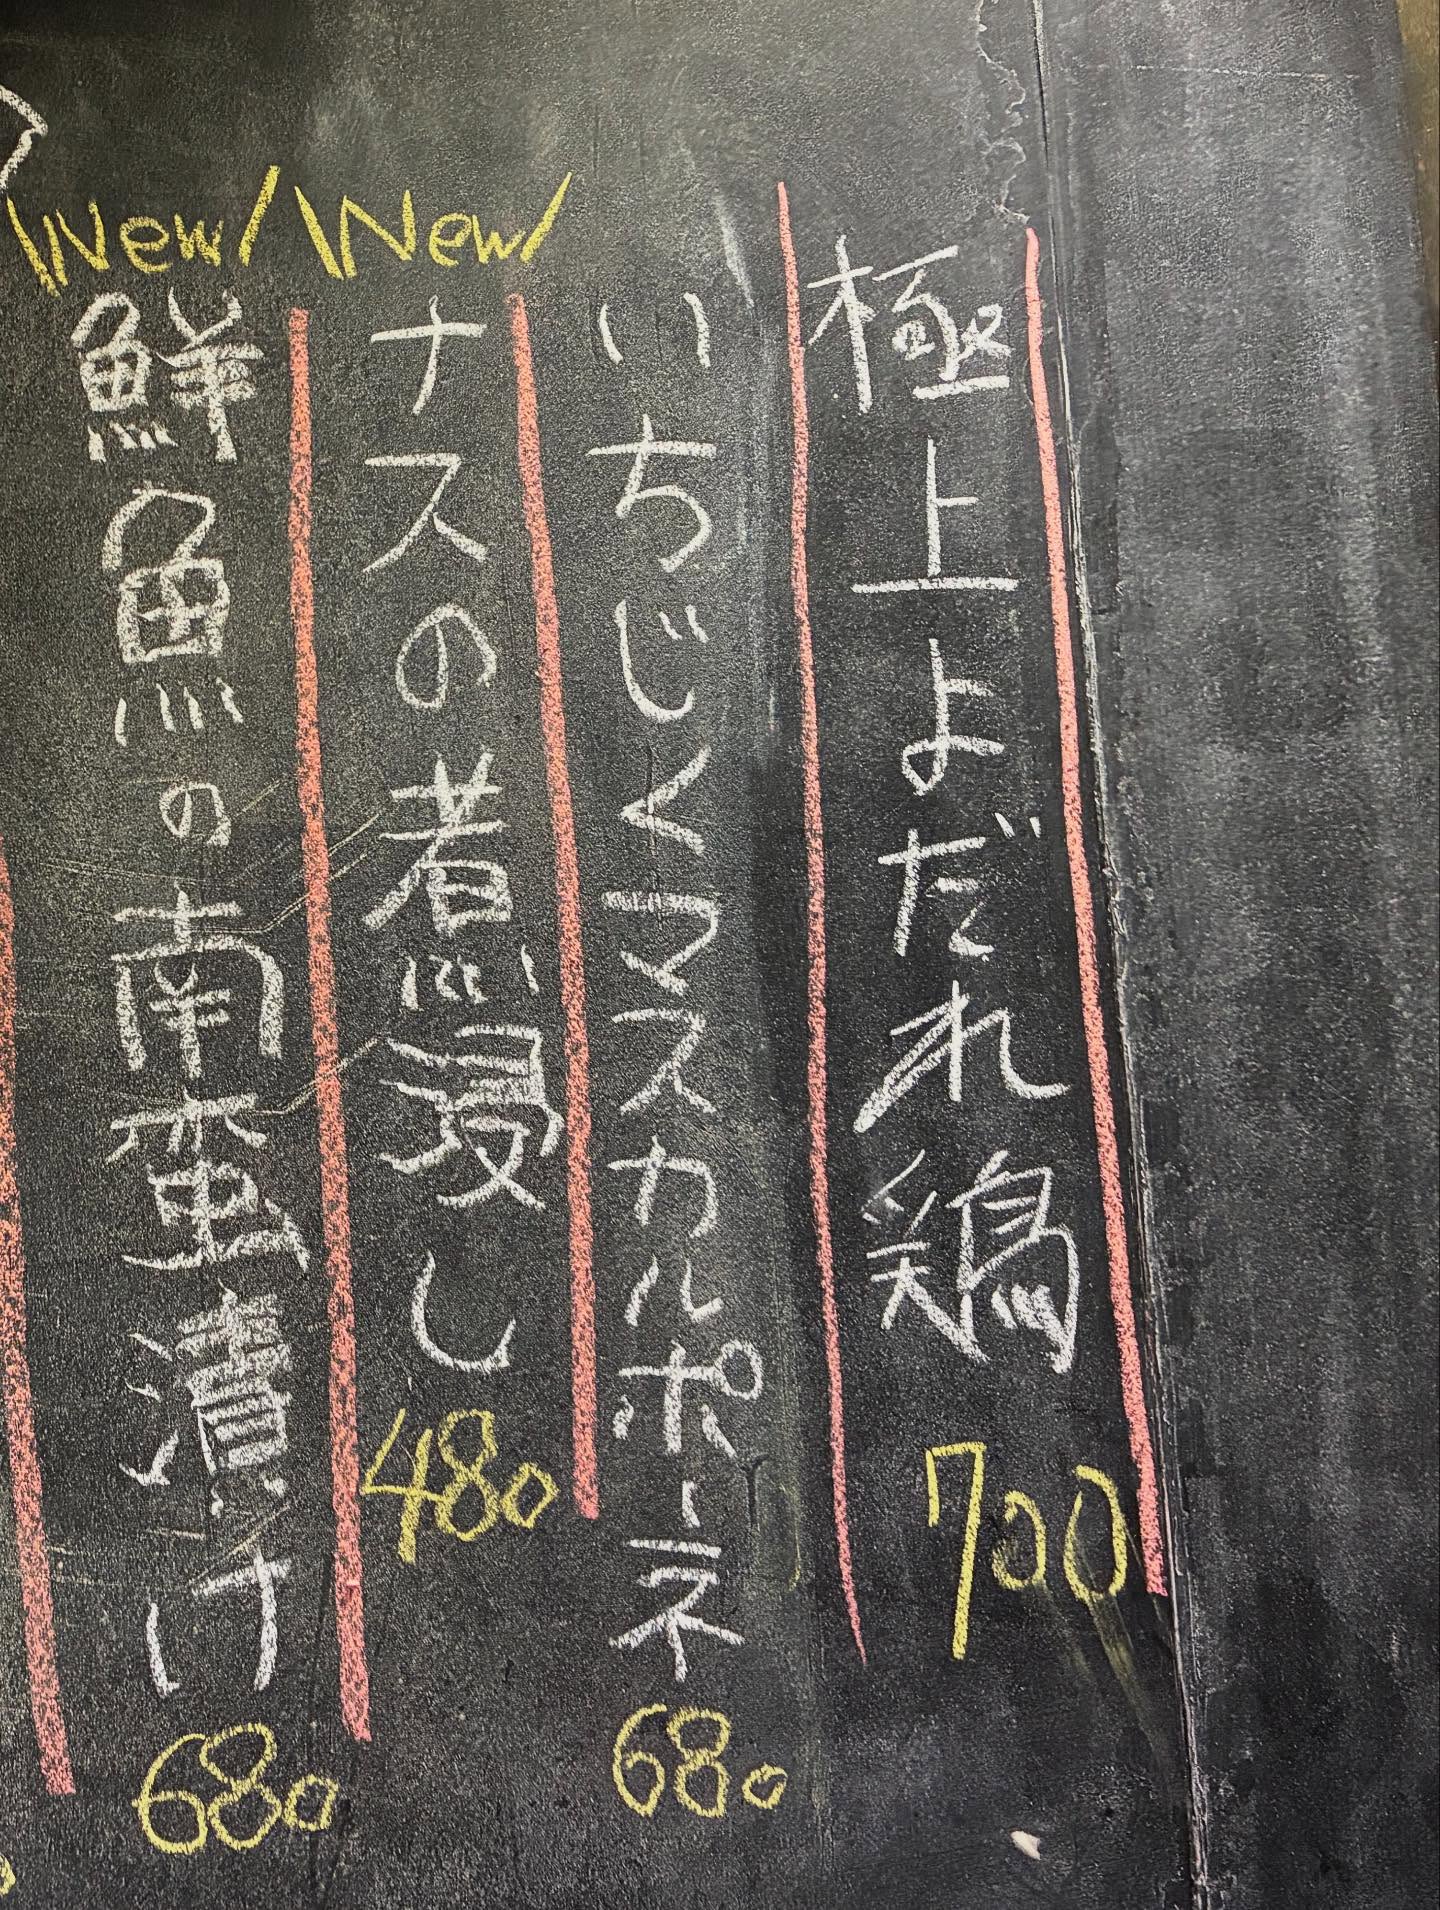 極上よだれ鶏 700
いちじくマスカルポーネ 680
\New/
ナスの煮浸し 480
\New/
鮮魚の南蛮漬け 680